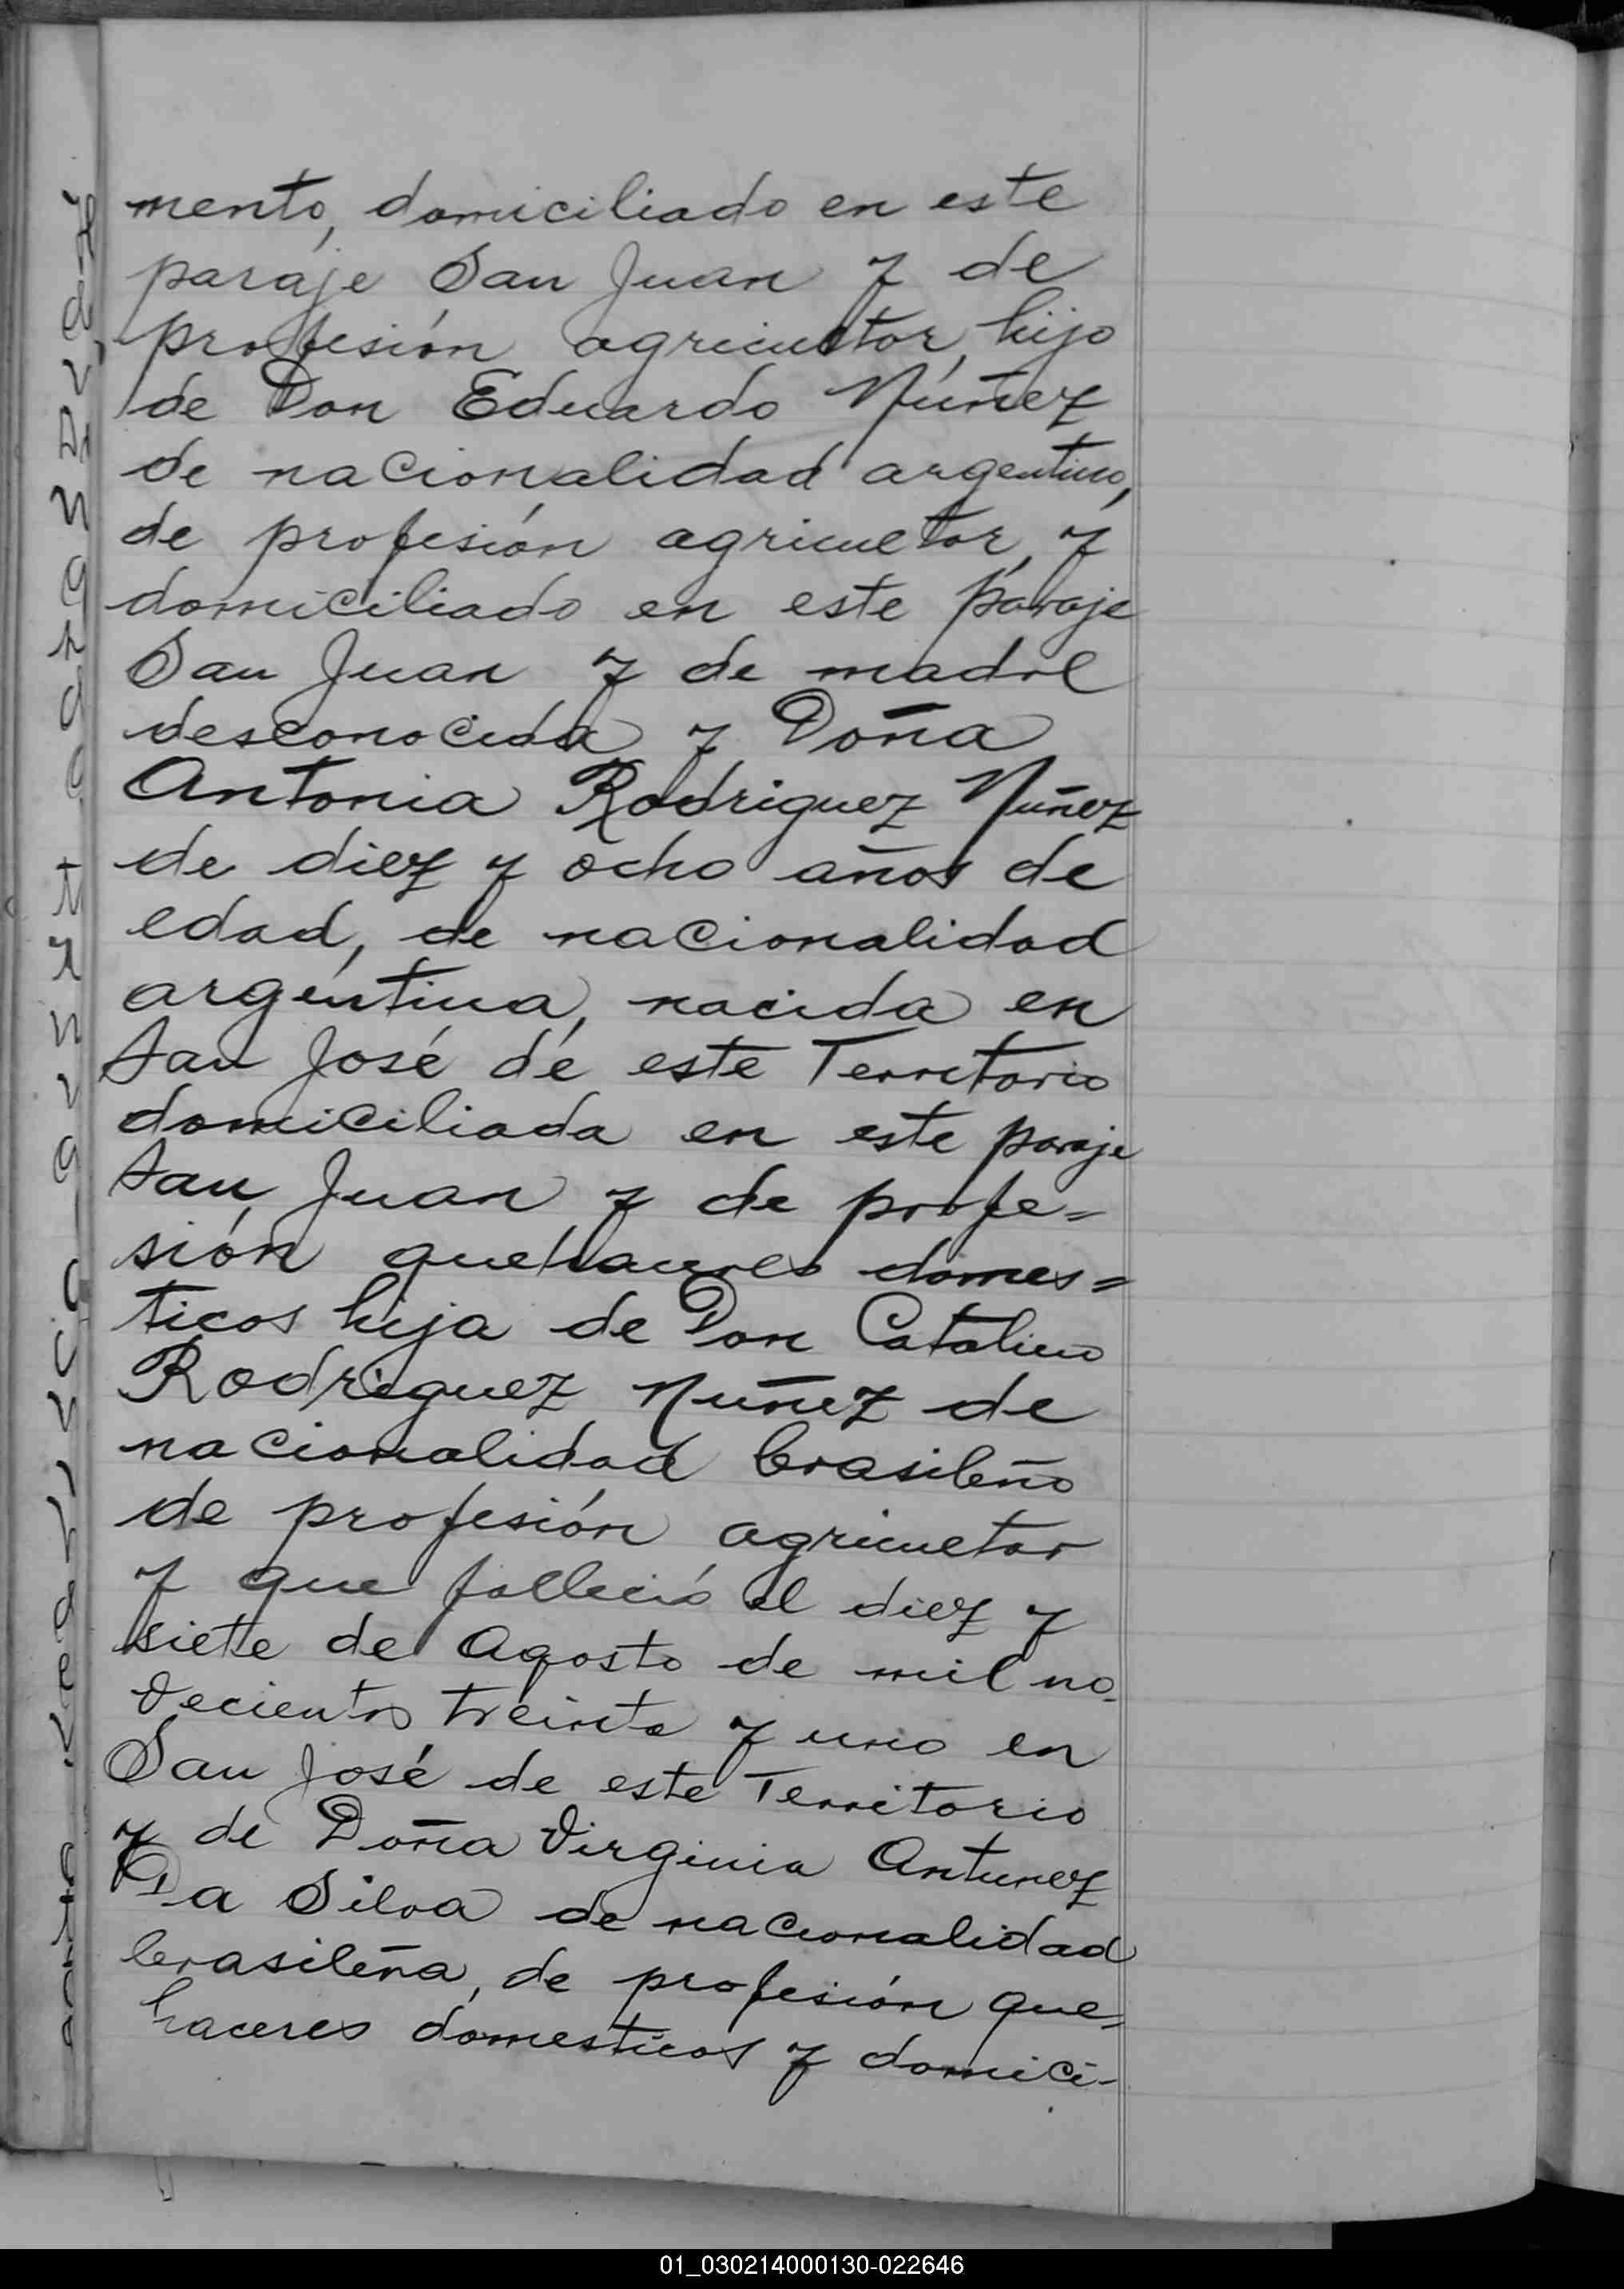 mento, domiciliado en este
paraje San Juan y de
profesión agricultor, hijo
de Don Eduardo Núñez
de nacionalidad argentino,
de profesión agricultor, y
domiciliado en este paraje
San Juan y de madre
desconocida y Doña
Antonia Rodriguez Nuñez
de diez y ocho años de
edad, de nacionalidad
argentina, nacida en
San José de este Territorio
domiciliada en este paraje
San Juan y de profe=
sión quehaceres domes=
ticos hija de Don Catalino
Rodriguez Nuñez de
nacionalidad brasileño
de profesión agricultor
y que falleció el diez y
siete de Agosto de mil no-
vecientos treinta y uno en
San José de este Territorio
y de Doña Virginia Antunez
Da Silva de nacionalidad
brasileña, de profesión que-
haceres domesticos y domici-
01_030214000130-022646